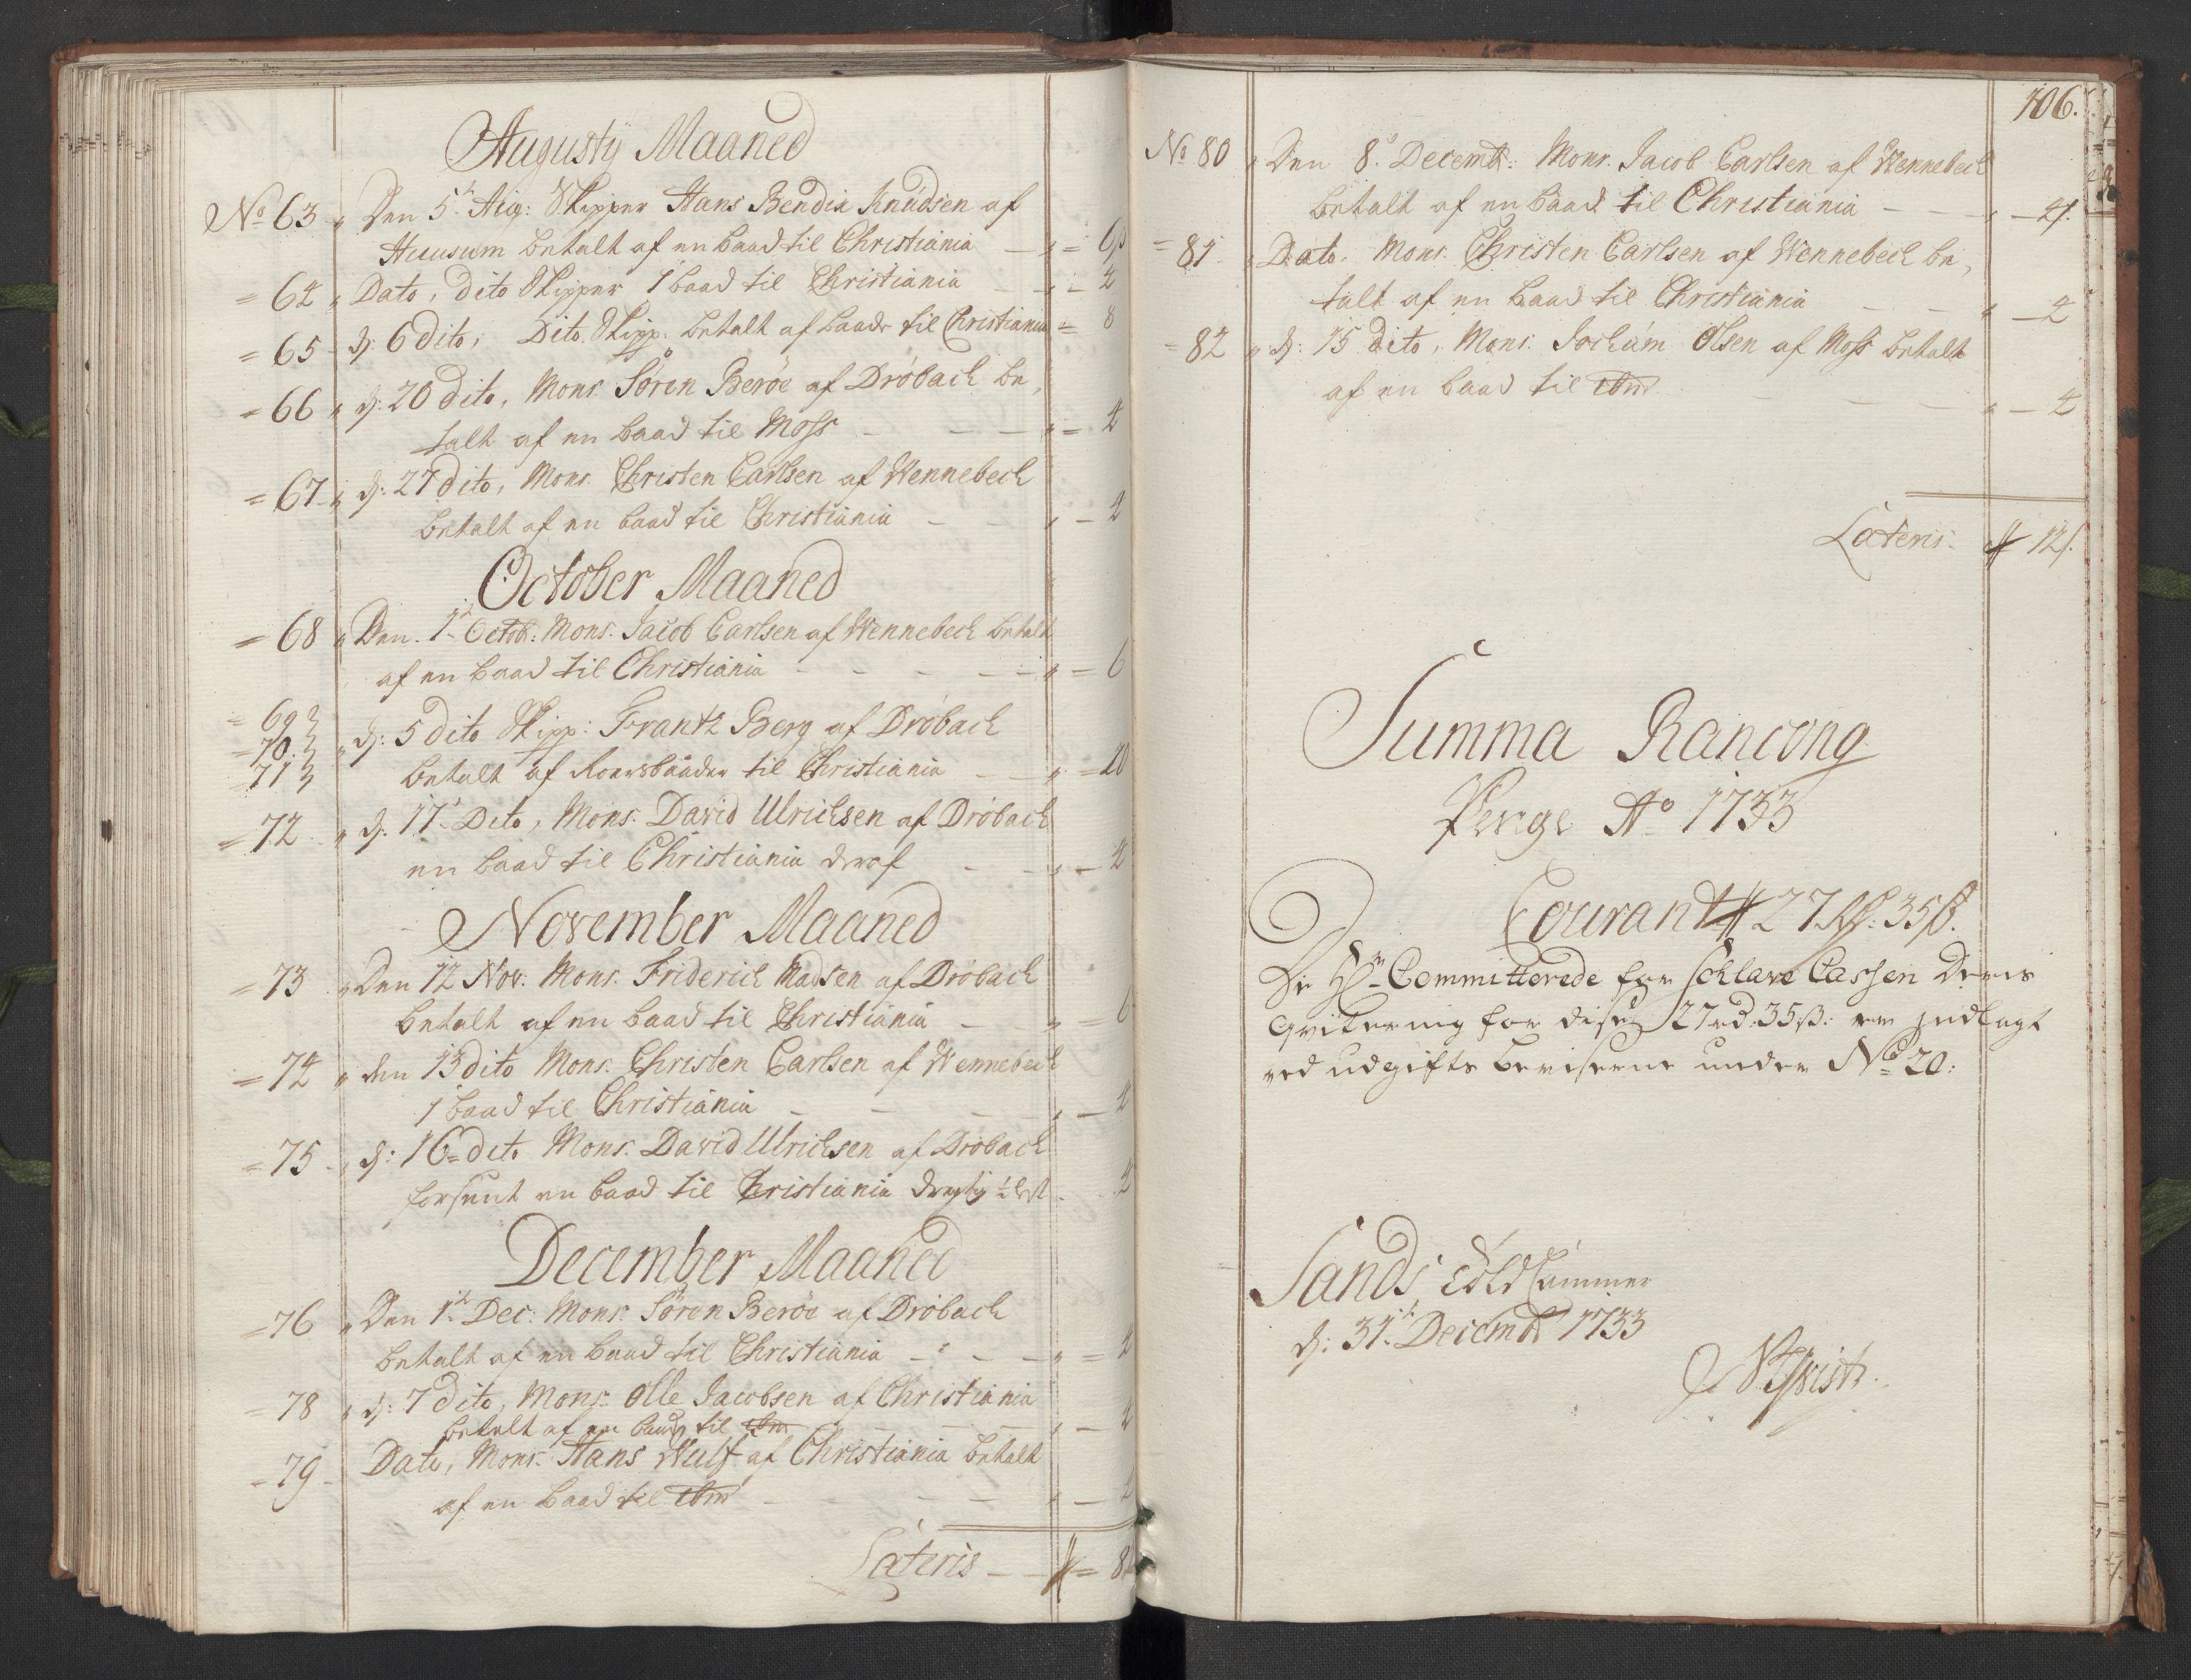 Augusty Maaned
No 63 Den 5t Aug: Skipper Hans Bendix Knudsen af
Huusum betalt af en baad til Christiania - " = 6s
= 64 Dato, dito Skipper 1 baad til Christiania - - 4
= 65 d: 6 dito, Dito Skipp: betalt af baade til Christiania = 8
= 66 " d: 20 dito, Mons. Sören Beröe af Dröbach be,
talt af en baad til Moss - - - " = 4
= 67 " d: 27 dito, Mons. Christen Carlsen af Wennebech
betalt af en baad til Christiania - - " - 4
October Maaned
= 68 " Den 1t Octob: Mons. Jacob Carlsen af Wennebech betalt
af en baad til Christiania - - - - " = 6
= 69
= 70
71 " d: 5 dito Skipp: Frantz Berg af Dröbach
betalt af Roersbaader til Christiania - - " = 20
= 72 " d. 17t Dito, Mons. David Ulrichsen af Dröbach
en baad til Christiania deraf - - " - 4
November Maaned
= 73 " Den 12 Nov: Mons. Friderich Madsen af Dröbach
betalt af en baad til Christiania - - " = 6
= 74 " den 13 dito Mons. Christen Carlsen af Wennebech
1 baad til Christiania - - - " - 4
= 75 " d: 16 dito Mons. David Ulrichsen af Dröbach
forsent en baad til Christiania drægtig ½ Lest - 4
December Maaned
= 76 " Den 1t Dec: Mons. Sören Beröe af Dröbach
betalt af en baad til Christiania - - - " = 4
= 78 " d: 7 dito, Mons. Olle Jacobsen af Christiania
betalt af en baad til - - - " - 4
= 79 - Dato, Mons. Hans Wulf af Christiania betalt
af en baad til - - - " -
Lateris - - = 8
106.
No 80 " Den 8t Decemb: Mons. Jacob Carlsen af Wennebech
betalt af en baad til Christiania - - - " - 4s.
= 81 " Dato. Mons. Christen Carlsen af Wennebech be,
talt af en baad til Christiania - - " - 4
= 82 " d: 15 dito, Mons. Jochum Olsen af Moss betalt
af en baad til - - - " - 4
Lateris 12s.
Summa Rancong
Penge Ao 1733
Courant 27 Rd. 35 ß.
De Hrr Committerede for Schlave Cassen Deris
Qvitering for disse 27 rd: 35 ß: er indlagt
ved udgifts beviserne under No 20:
Sands Told Cammer
d: 31t Decemb 1733